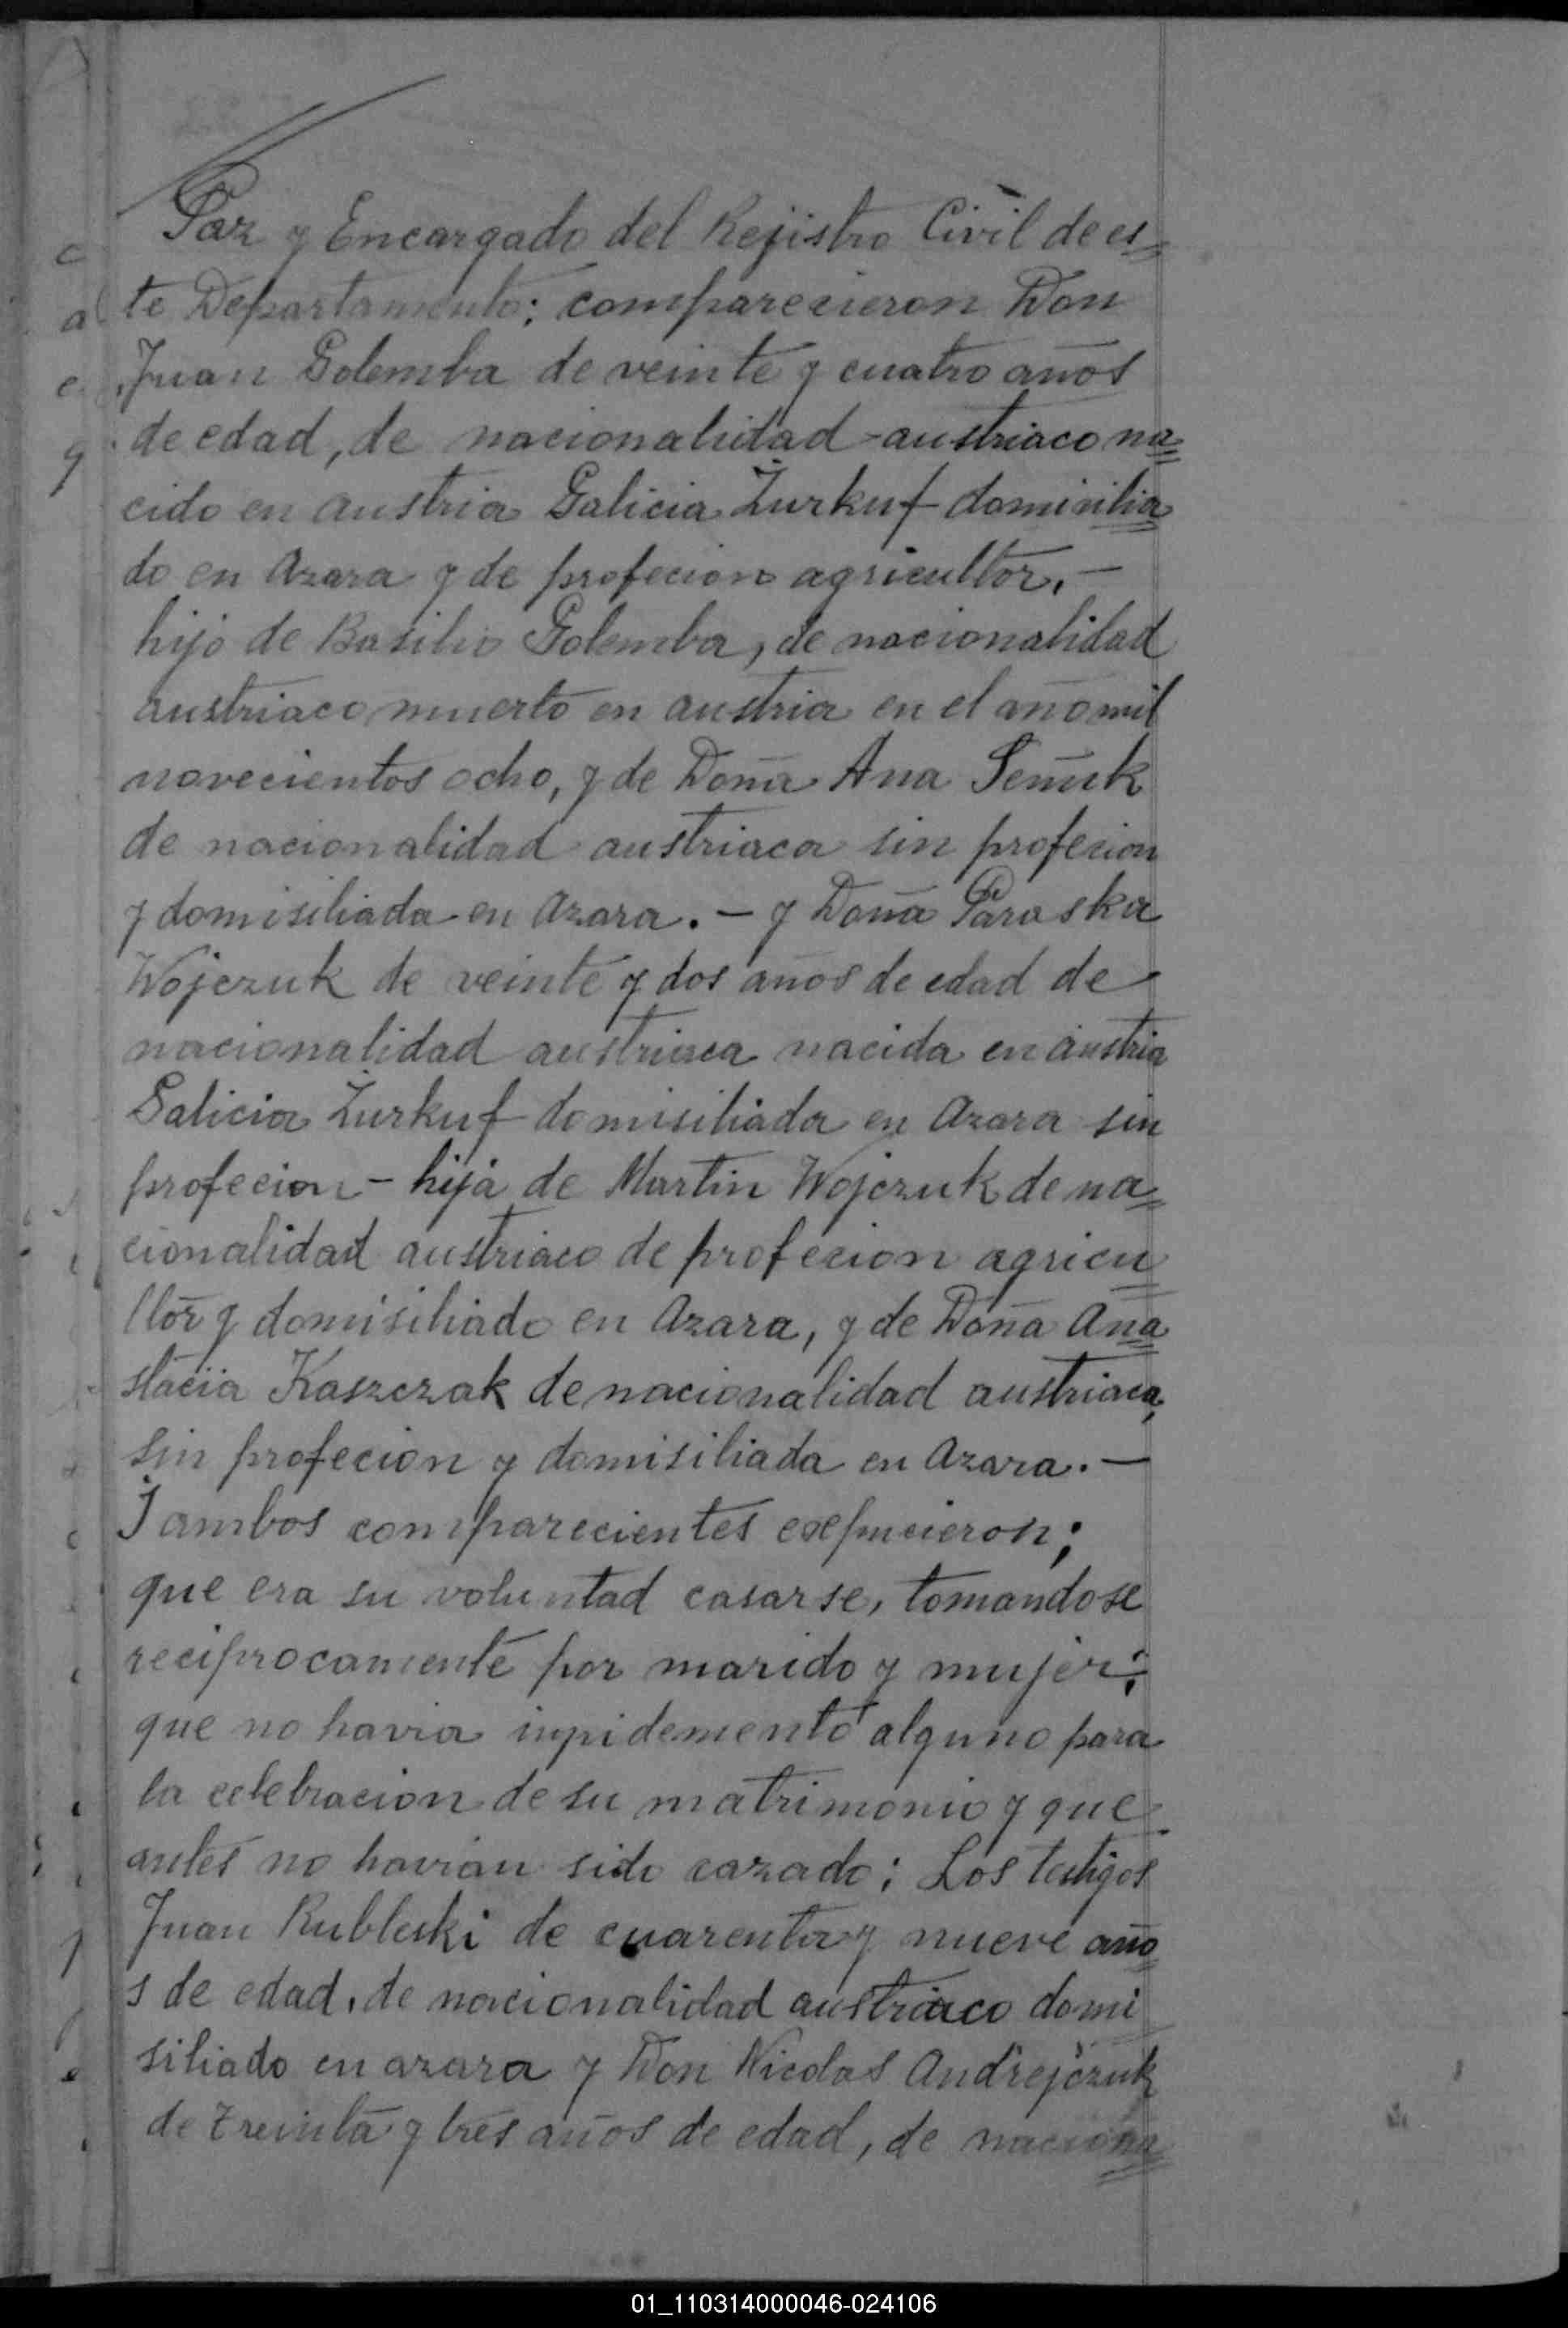 Paz y Encargado del Rejistro Civil de es=
te Departamento; comparecieron Don
Juan Golemba de veinte y cuatro años
de edad, de nacionalidad austriaco na=
cido en austria Galicia Żurkuf domisilia=
do en Azara y de profecion agricultor. —
hijo de Basilio Golemba, de nacionalidad
austriaco muerto en austria en el año mil
novecientos ocho, y de Doña Ana Señuk
de nacionalidad austriaca sin profecion
y domisiliada en Azara. — y Doña Paraska
Wojczuk de veinte y dos años de edad de
nacionalidad austriaca nacida en austria
Galicia Żurkuf domisiliada en Azara sin
profecion — hija de Martin Wojczuk de na=
cionalidad austriaco de profecion agricu=
ltor y domisiliado en Azara, y de Doña Ana=
stacia Kaszczak de nacionalidad austriaca,
sin profecion y domisiliada en Azara. —
I ambos comparecientes expucieron;
que era su voluntad casarse, tomandose
reciprocamente por marido y mujer;
que no havia inpidemento alguno para
la celebracion de su matrimonio y que
antes no havian sido cazado; Los testigos
Juan Rubleski de cuarenta y nueve año=
s de edad, de nacionalidad austriaco domi=
siliado en azara y Don Nicolas Andrejczuk
de treinta y tres años de edad, de naciona=
01_110314000046-024106